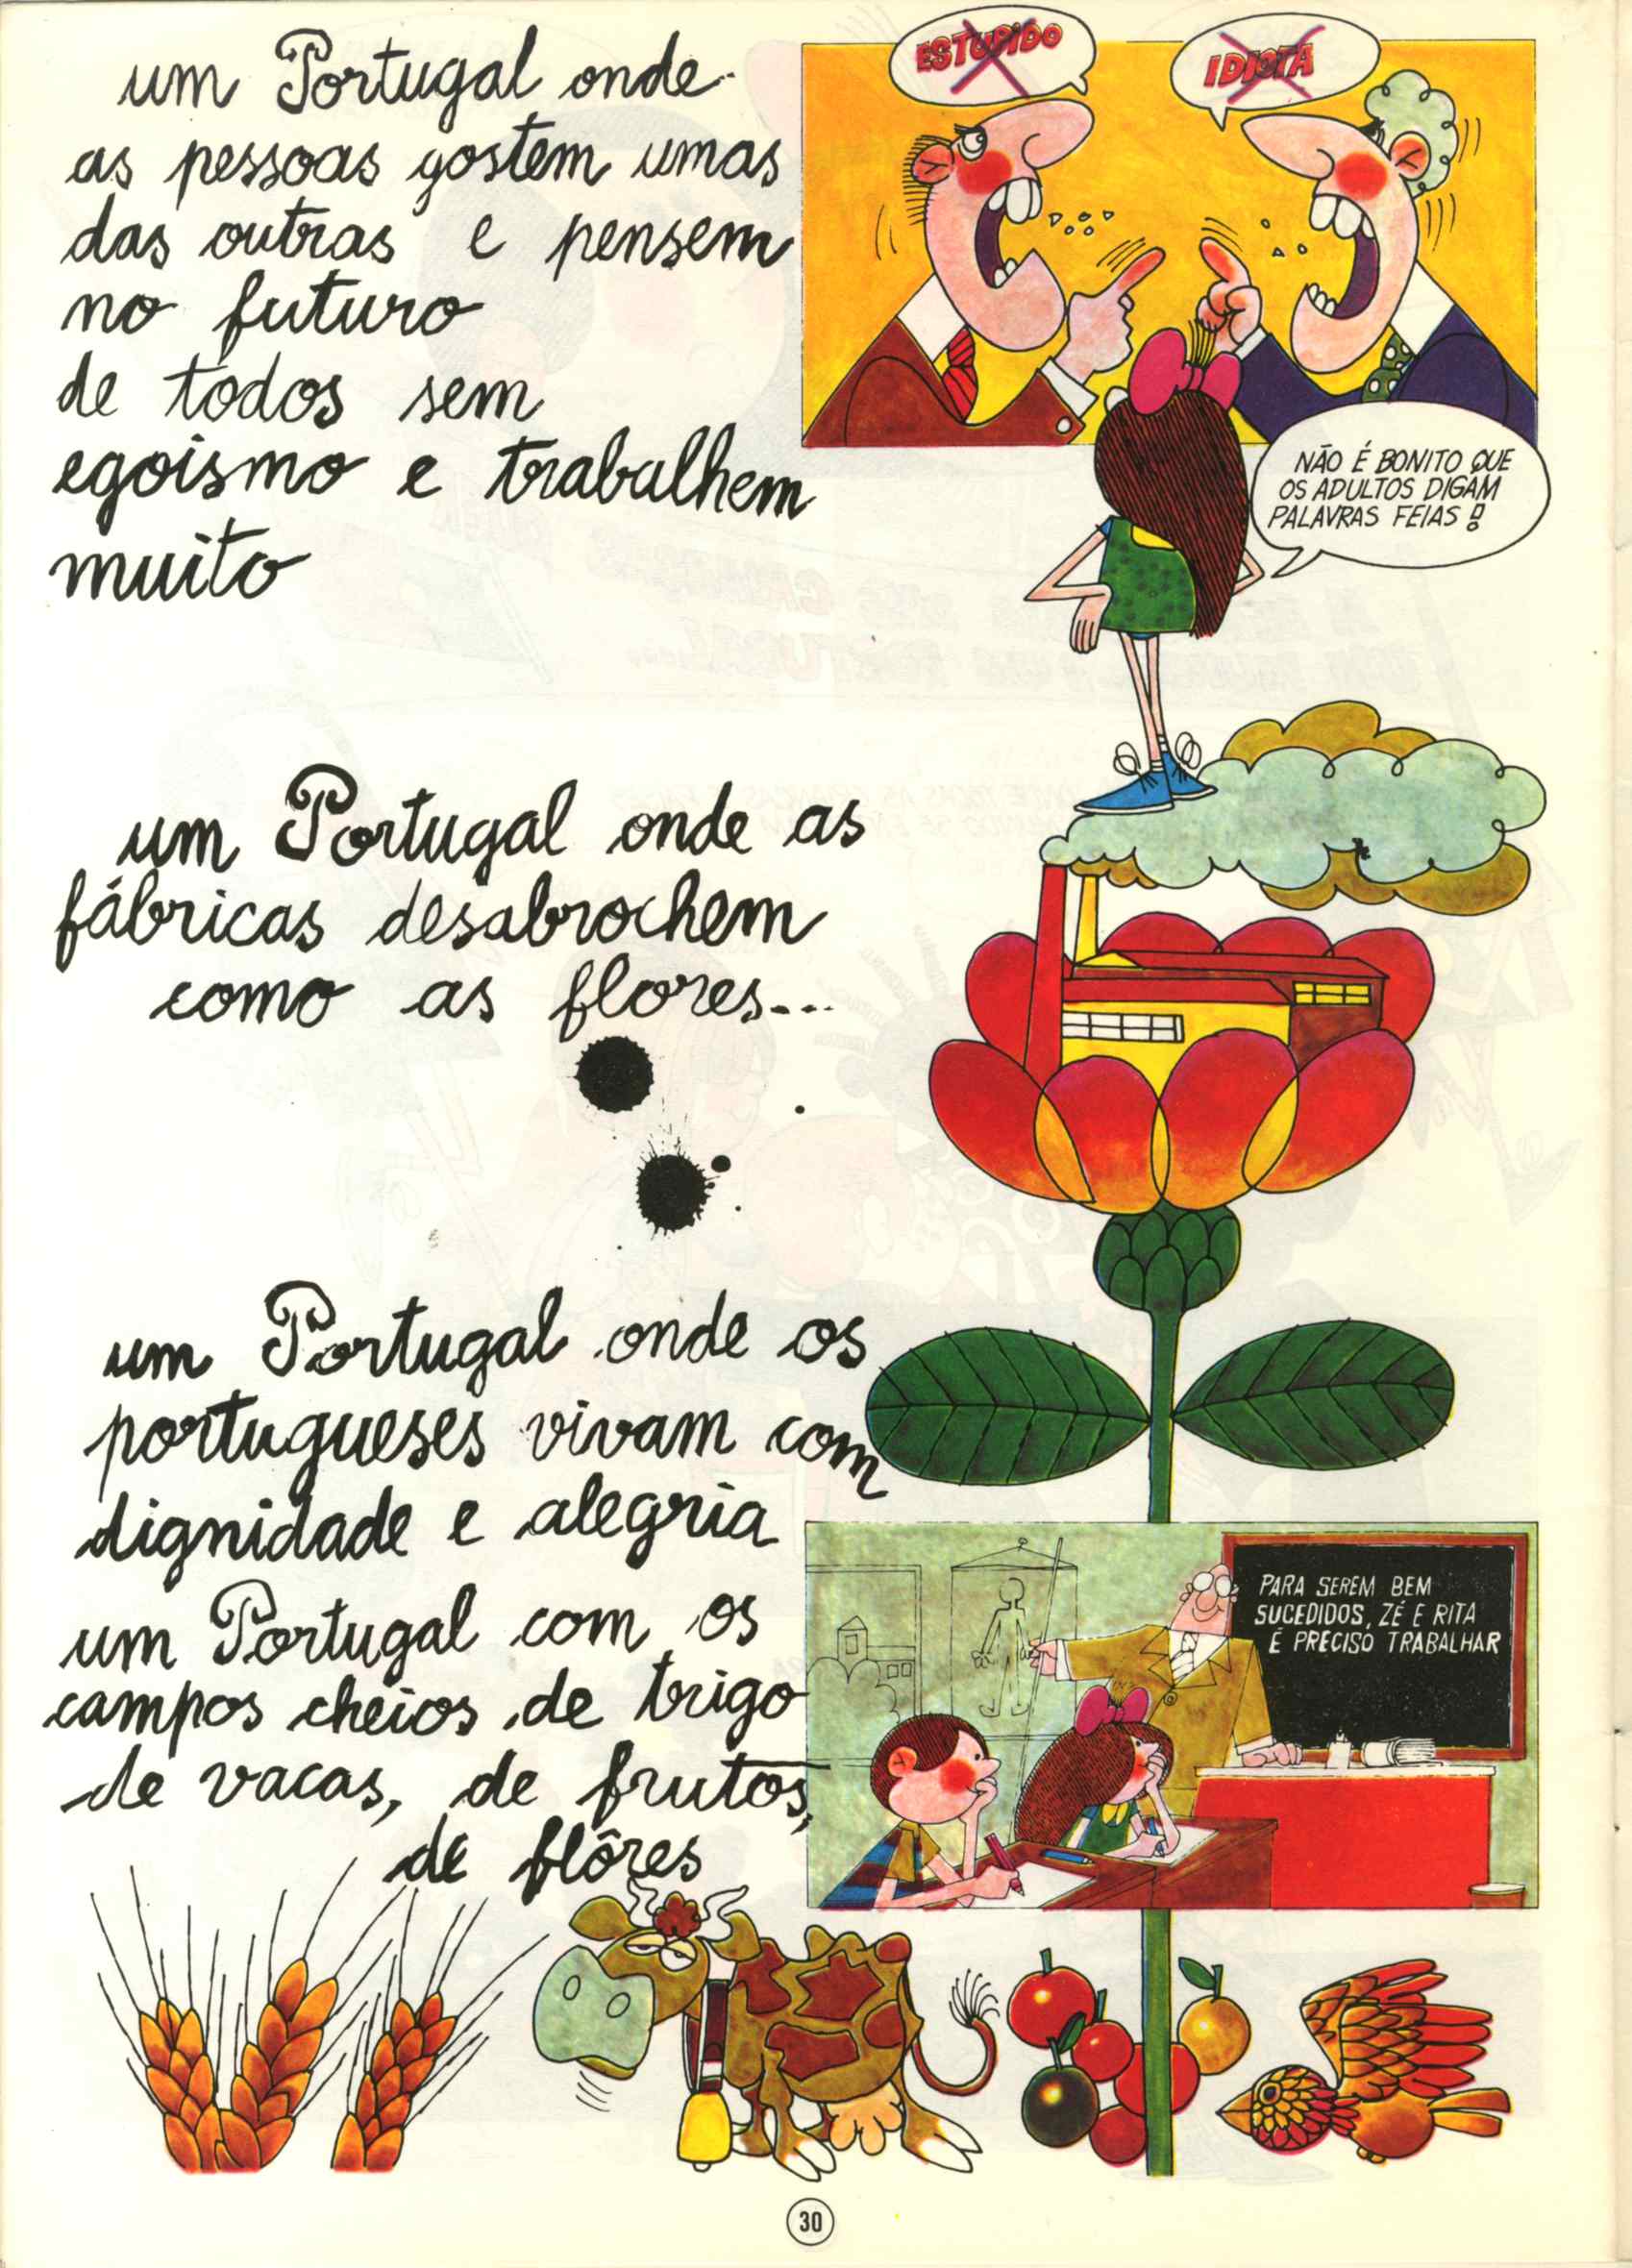 um Portugal onde
as pessoas gostem umas
das outras e pensem
no futuro
de todos sem
egoismo e trabalhem
muito
ESTUPIDO
IDIOTA
NÃO É BONITO QUE
OS ADULTOS DIGAM
PALAVRAS FEIAS!
um Portugal onde as
fábricas desabrochem
como as flores...
um Portugal onde os
portugueses vivam com
dignidade e alegria
um Portugal com os
campos cheios de trigo
de vacas, de frutos,
de flôres
PARA SEREM BEM
SUCEDIDOS, ZÉ E RITA
É PRECISO TRABALHAR
30